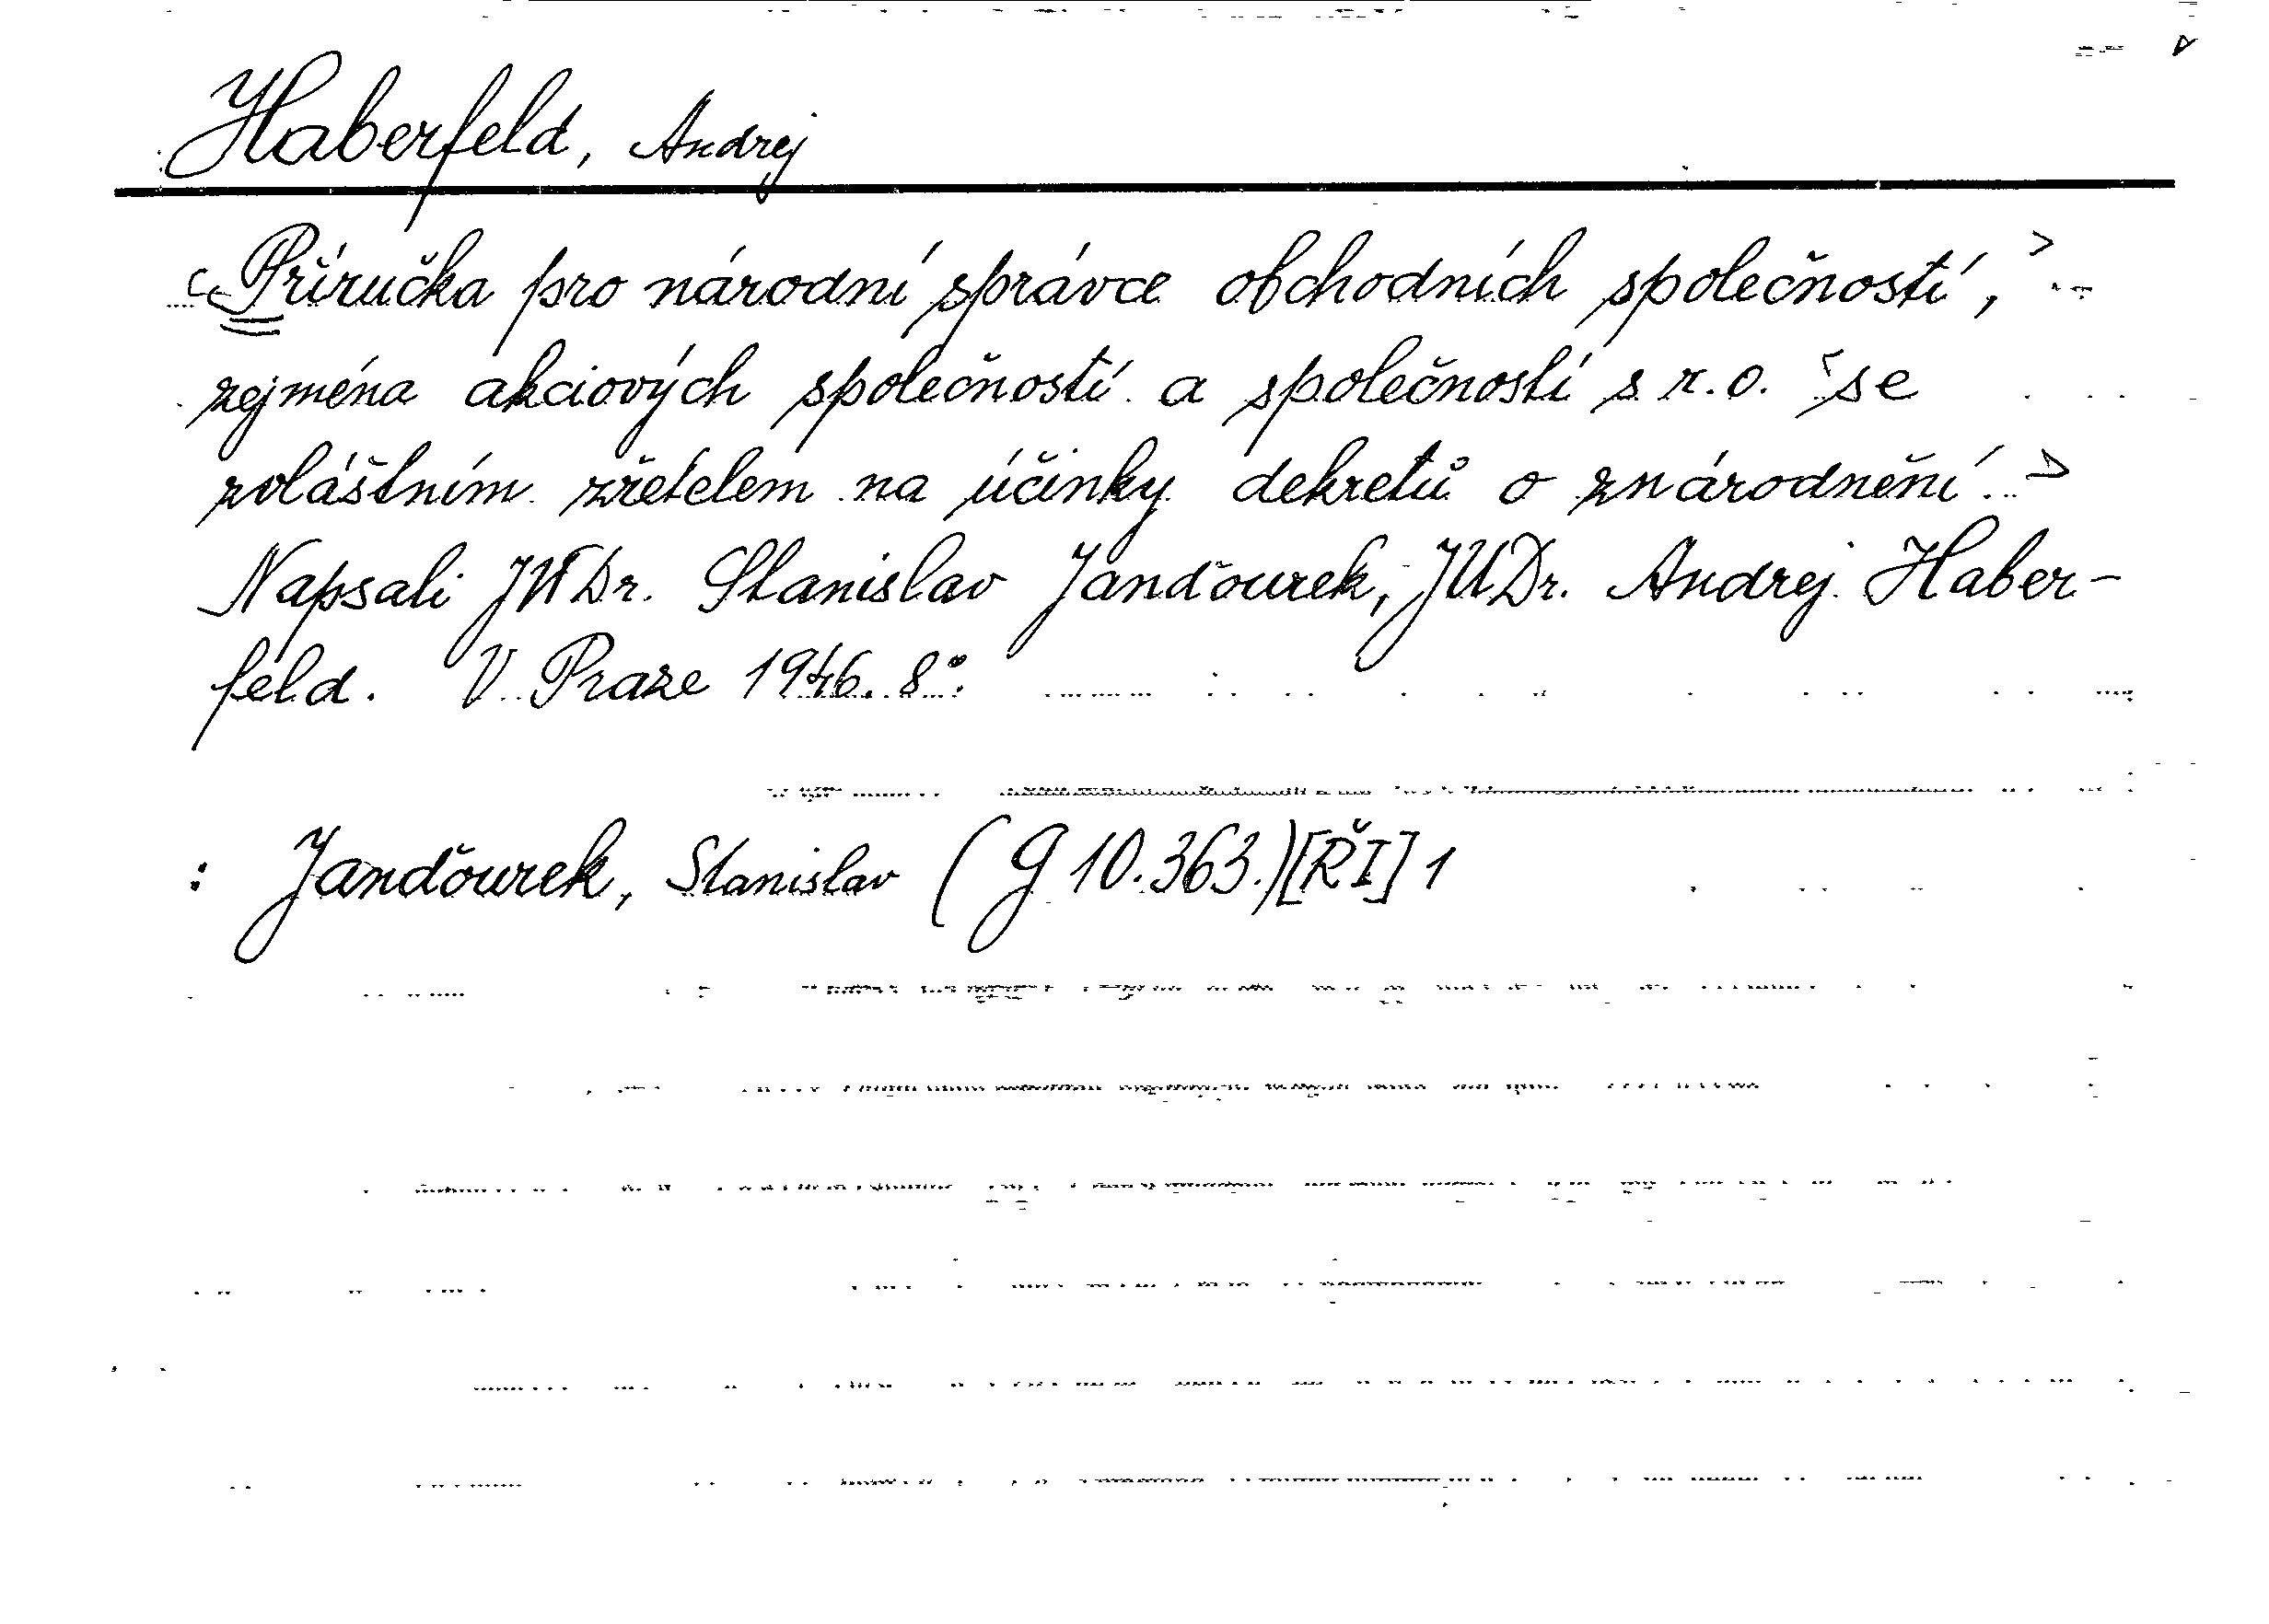 Haberfeld, Andrej
<Příručka pro národní správce obchodních společností,>
zejména akciových společností a společností s r.o. <se
zvláštním zřetelem na účinky dekretů o znárodnění.>
Napsali JUDr. Stanislav Janďourek, JUDr. Andrej Haber-
feld. V Praze 1946. 8°.
: Janďourek, Stanislav (G 10.363.)[ŘI] 1